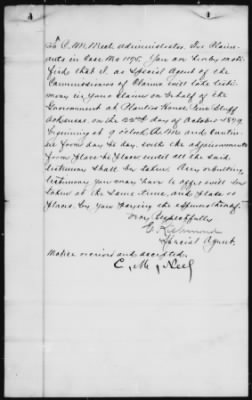 To C. M. Neel Administrator. For Claim-
ants in Case No 1195. You are hereby noti-
fied that I, as Special Agent of the
Commissioners of Claims will take testi-
mony in your claims on behalf of the
Government at Planters House, Pine Bluff
Arkansas on the 22nd day of October 1879
beginning at 9 o'clock A.M. and contin-
ue from day to day with the adjournments
from place to place until all the said
testimony shall be taken. Any rebutting
testimony you may have to offer will be
taken at the same time, and place or
places by you paying the expenses thereof
Very Respectfully
Special Agent.
Notice received and accepted.
C. M. Neel